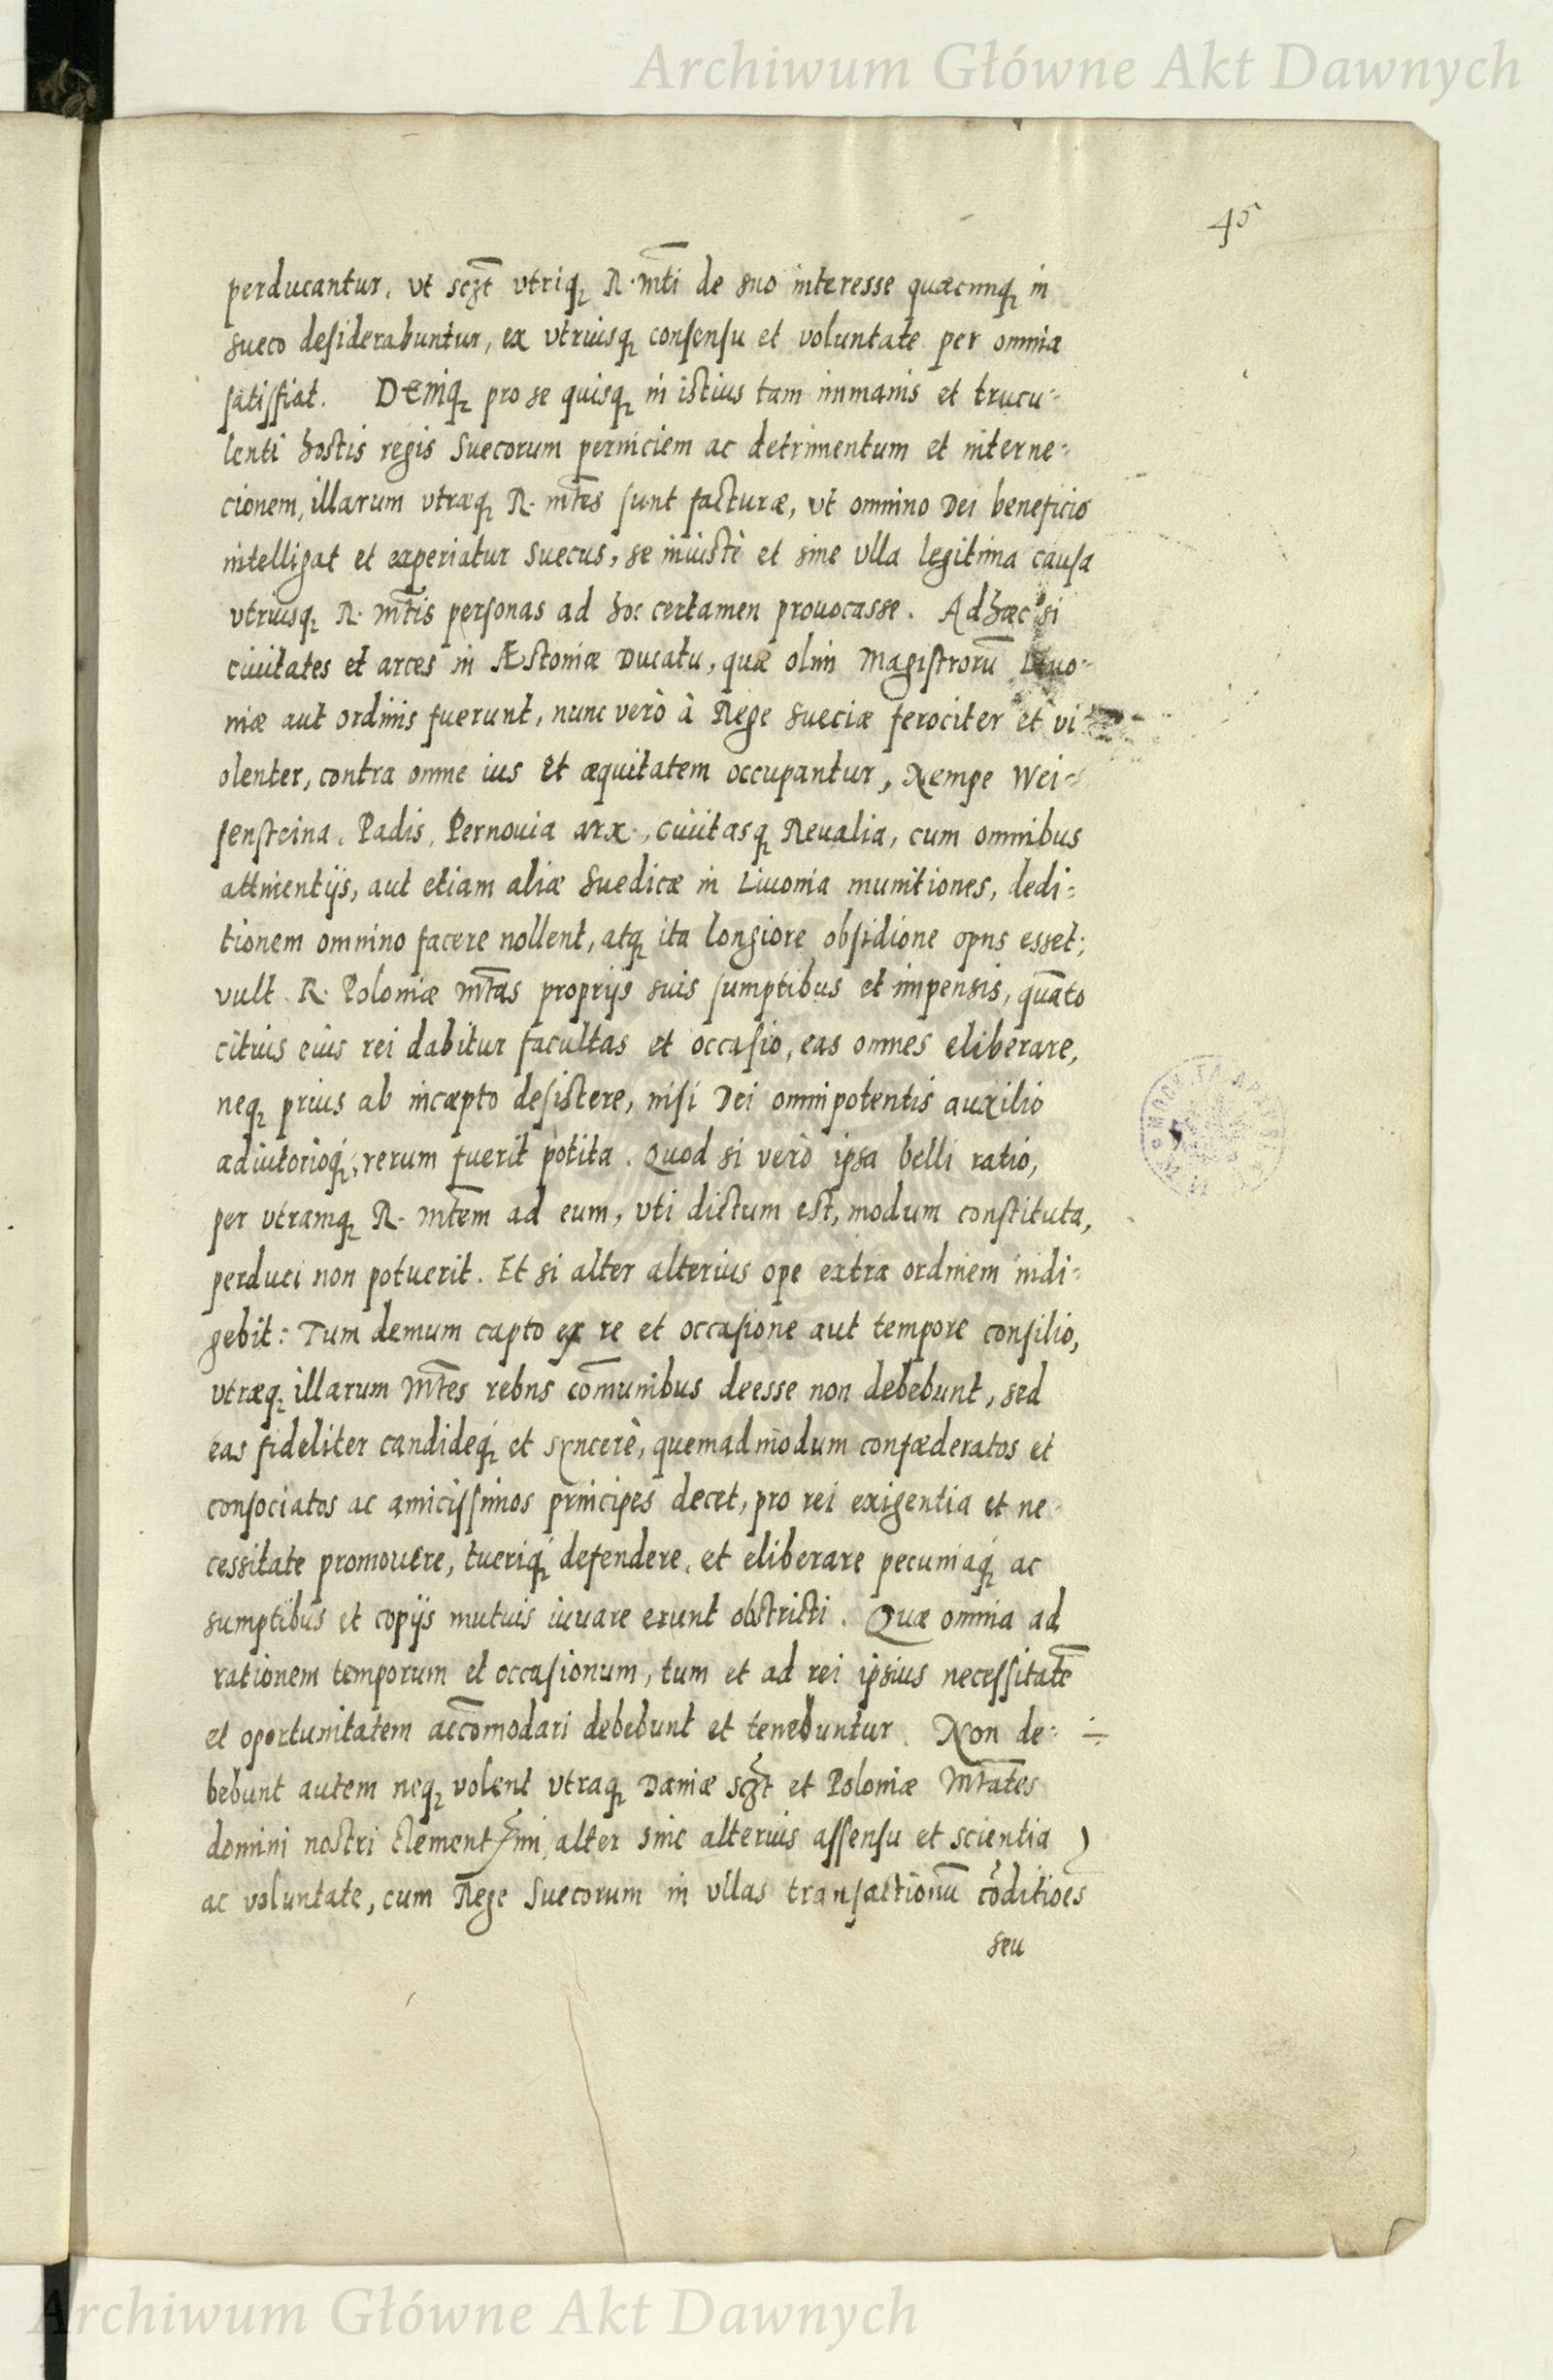 Archiwum Główne Akt Dawnych
45
perducantur, vt sczt vtriq, R. Mti de suo interesse quæcunq, in
sueco desiderabuntur, ex vtriusq, consensu et voluntate per omnia
satisfiat. Deniq, pro se quisq, in istius tam immanis et trucu-
lenti hostis regis Suecorum perniciem ac detrimentum et interne-
cionem, illarum vtræq, R. Mtes sunt facturæ, vt omnino Dei beneficio
intelligat et experiatur Suecus, se iniustè et sine vlla legitima causa
vtriusq, R. Mtis personas ad hoc certamen prouocasse. Ad hæc si
ciuitates et arces in Æstoniæ Ducatu, quæ olim Magistrorū Liuo-
niæ aut ordinis fuerunt, nunc verò à Rege Sueciæ ferociter et vi
olenter, contra omne ius et æquitatem occupantur, Nempe Wei-
sensteina, Padis, Pernouia arx, ciuitasq, Reualia, cum omnibus
attinentijs, aut etiam aliæ Suedicæ in Liuonia munitiones, dedi-
tionem omnino facere nollent, atq, ita longiore obsidione opus esset;
vult R. Poloniæ Mtas proprijs suis sumptibus et impensis, quāto
citius eius rei dabitur facultas et occasio, eas omnes eliberare,
neq, prius ab incæpto desistere, nisi Dei omnipotentis auxilio
adiutorioq, rerum fuerit potita. Quod si verò ipsa belli ratio,
per vtramq, R. Mtem ad eum, vti dictum est, modum constituta,
perduci non potuerit. Et si alter alterius ope extra ordinem indi-
gebit: Tum demum capto ex re et occasione aut tempore consilio,
vtræq, illarum Mtes rebus cōmunibus deesse non debebunt, sed
eas fideliter candideq, et syncerè, quemadmodum confæderatos et
consociatos ac amicissimos principes decet, pro rei exigentia et ne-
cessitate promouere, tueriq, defendere, et eliberare pecuniaq, ac
sumptibus et copijs mutuis iuuare erunt obstricti. Quæ omnia ad
rationem temporum et occasionum, tum et ad rei ipsius necessitatē
et oportunitatem accōmodari debebunt et tenebuntur. Non de-
bebunt autem neq, volent vtraq, Daniæ sczt et Poloniæ Mtates
domini nostri clementssimi, alter sine alterius assensu et scientia
ac voluntate, cum Rege Suecorum in vllas transactionū cōditioes
seu
Archiwum Główne Akt Dawnych